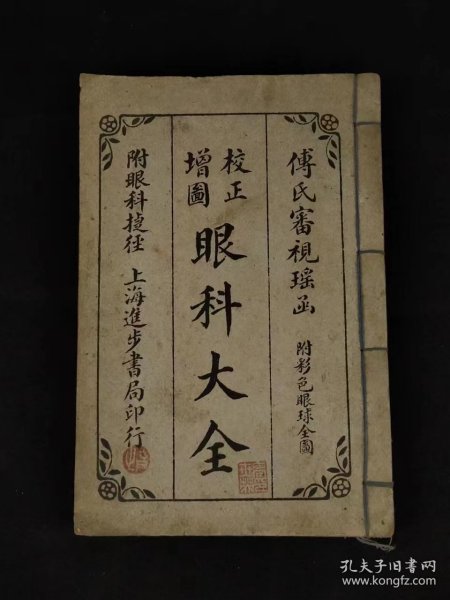 傅氏審視瑤函 附彩色眼球全圖
校正
增圖
眼科大全
附眼科捷徑 上海進步書局印行
孔夫子旧书网
www.kongfz.com